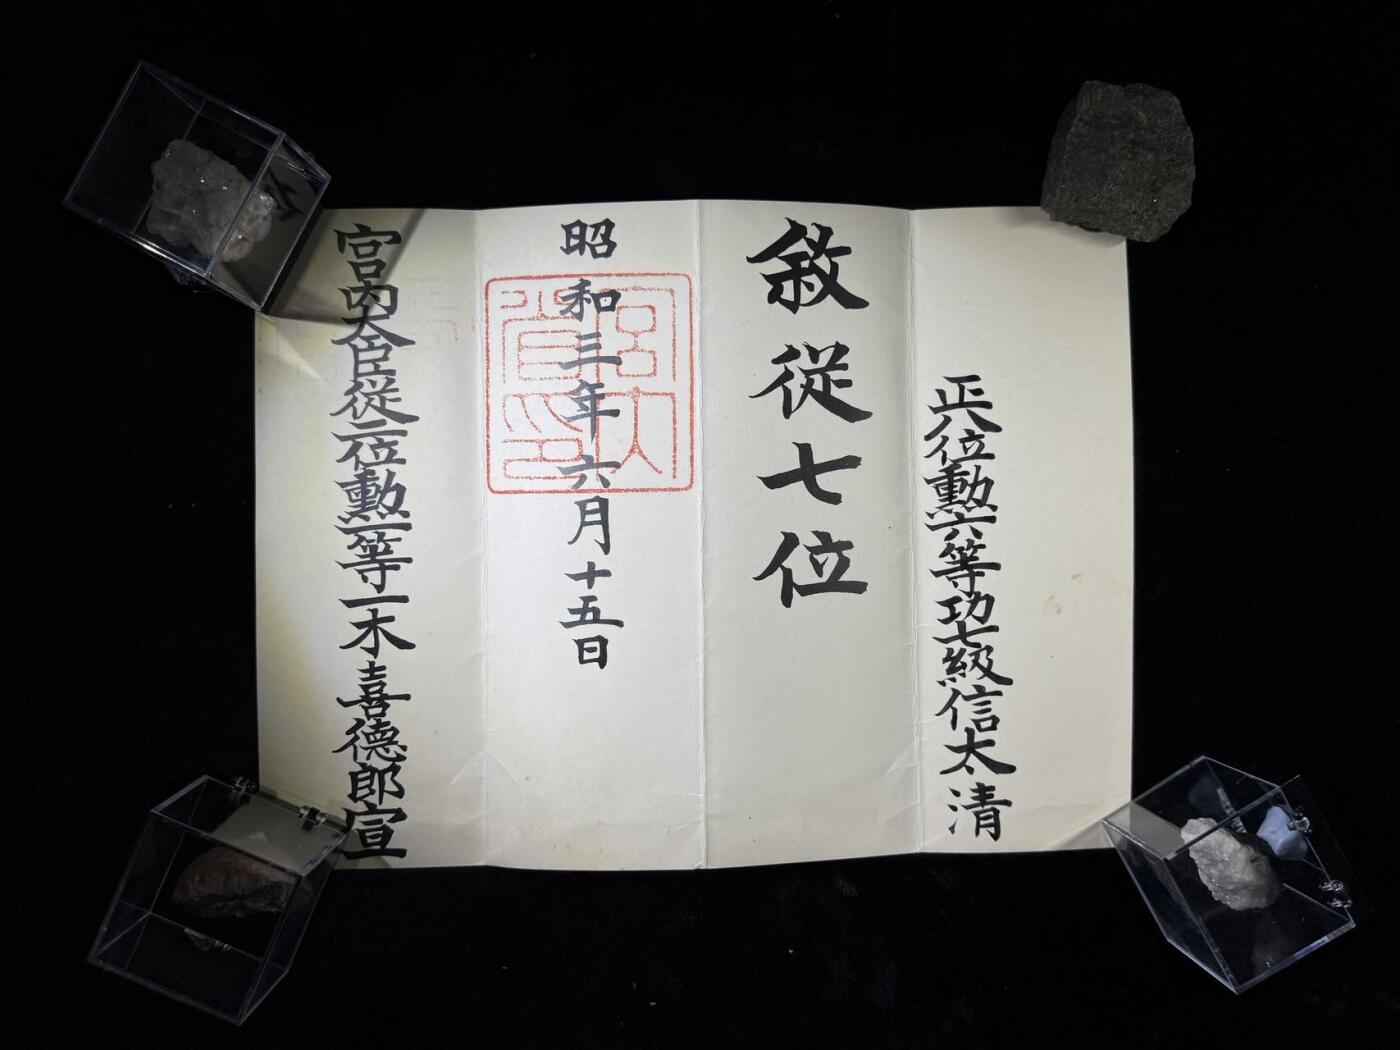 正八位勲六等功七級信太清
敘従七位
昭和三年六月十五日
宮内大臣従二位勲一等一木喜德郎宣
宮内省印